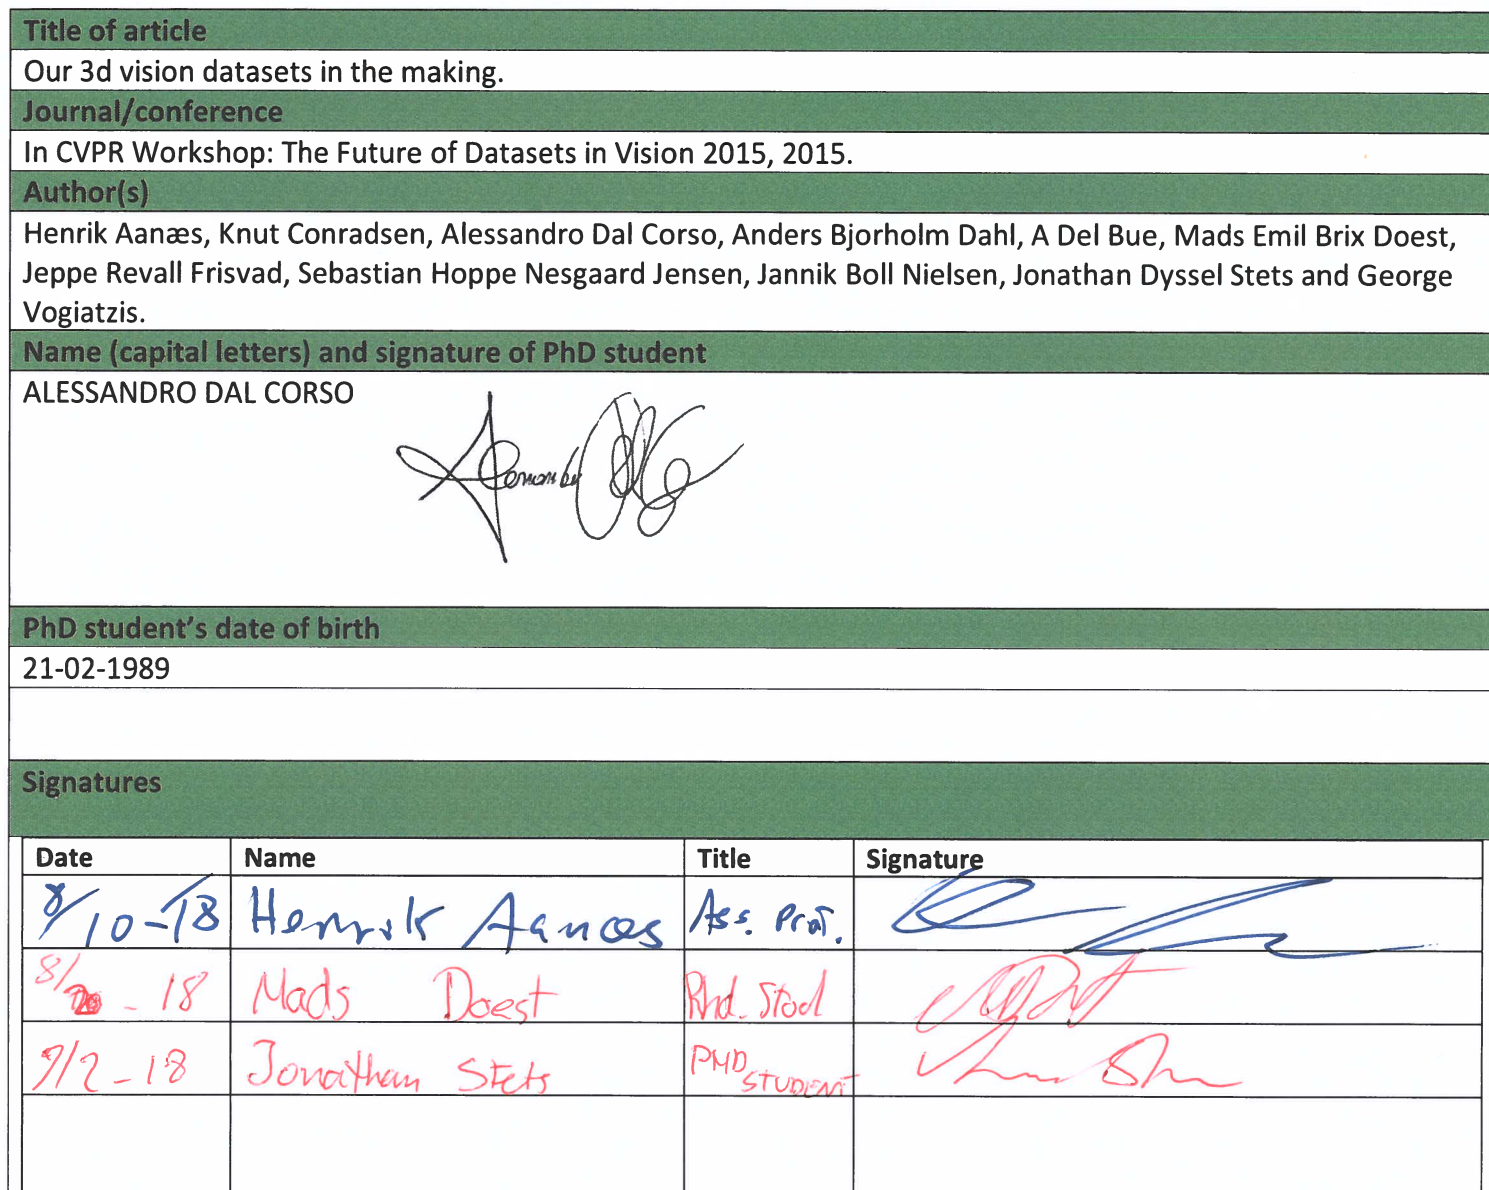 Title of article
Our 3d vision datasets in the making.
Journal/conference
In CVPR Workshop: The Future of Datasets in Vision 2015, 2015.
Author(s)
Henrik Aanæs, Knut Conradsen, Alessandro Dal Corso, Anders Bjorholm Dahl, A Del Bue, Mads Emil Brix Doest,
Jeppe Revall Frisvad, Sebastian Hoppe Nesgaard Jensen, Jannik Boll Nielsen, Jonathan Dyssel Stets and George
Vogiatzis.
Name (capital letters) and signature of PhD student
ALESSANDRO DAL CORSO
PhD student's date of birth
21-02-1989
Signatures
Date Name Title Signature
8/10-18 Henrik Aanæs Ass. Prof.
8/ - 18 Mads Doest Phd. Stod
9/2-18 Jonathan Stets PHD STUDENT